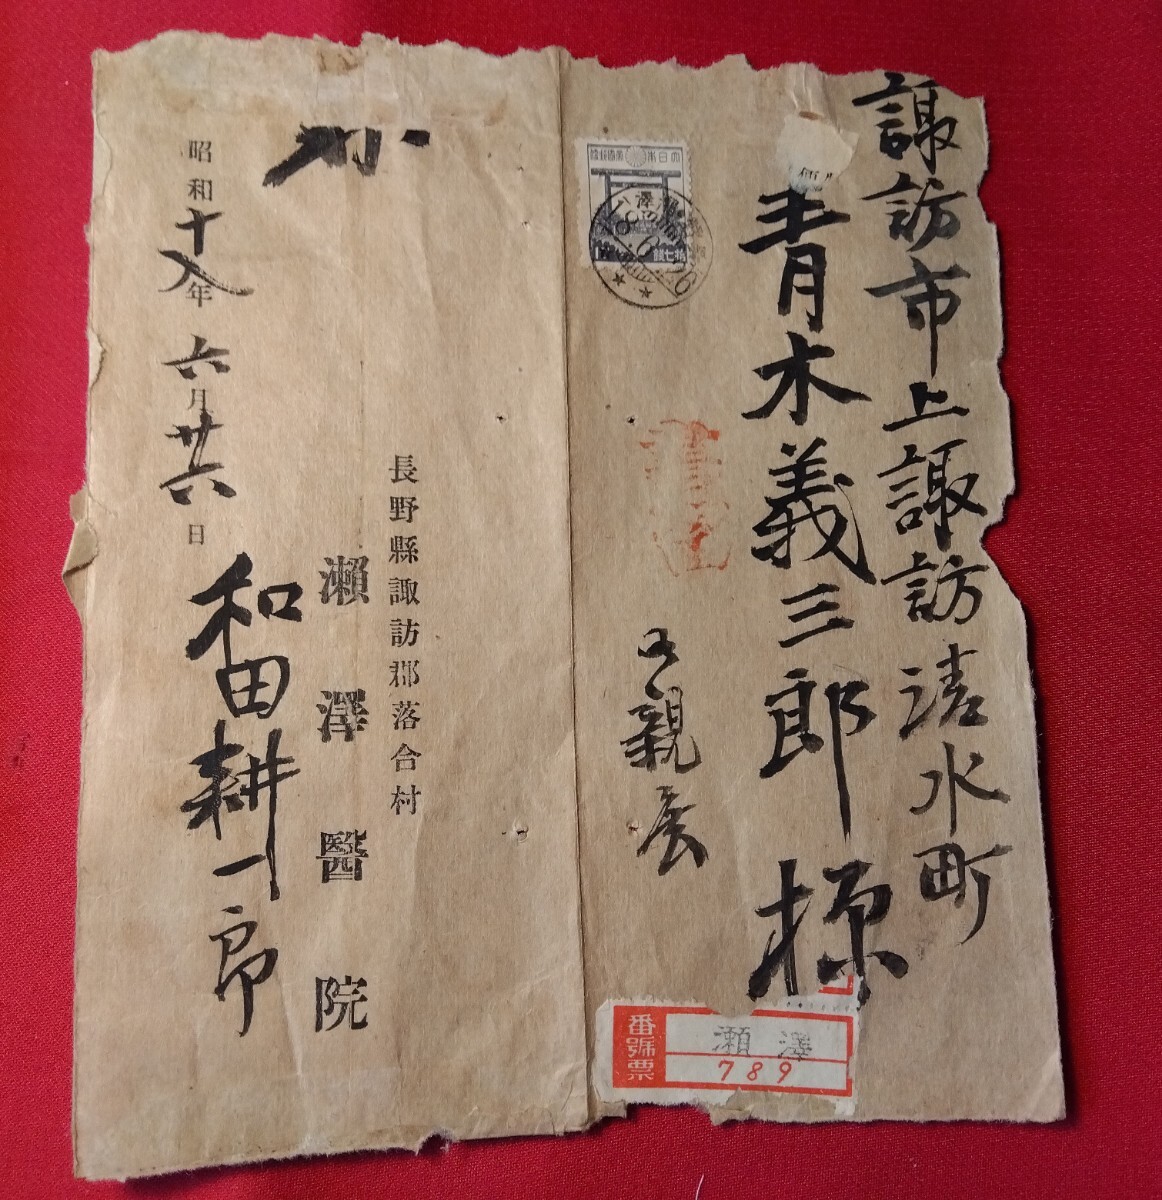 諏訪市上諏訪清水町
青木義三郎様
親展
書留
大日本帝國郵便
拾七錢
番號票
瀬澤
789
長野縣諏訪郡落合村
瀬澤醫院
和田耕一郎
昭和十八年六月廿六日